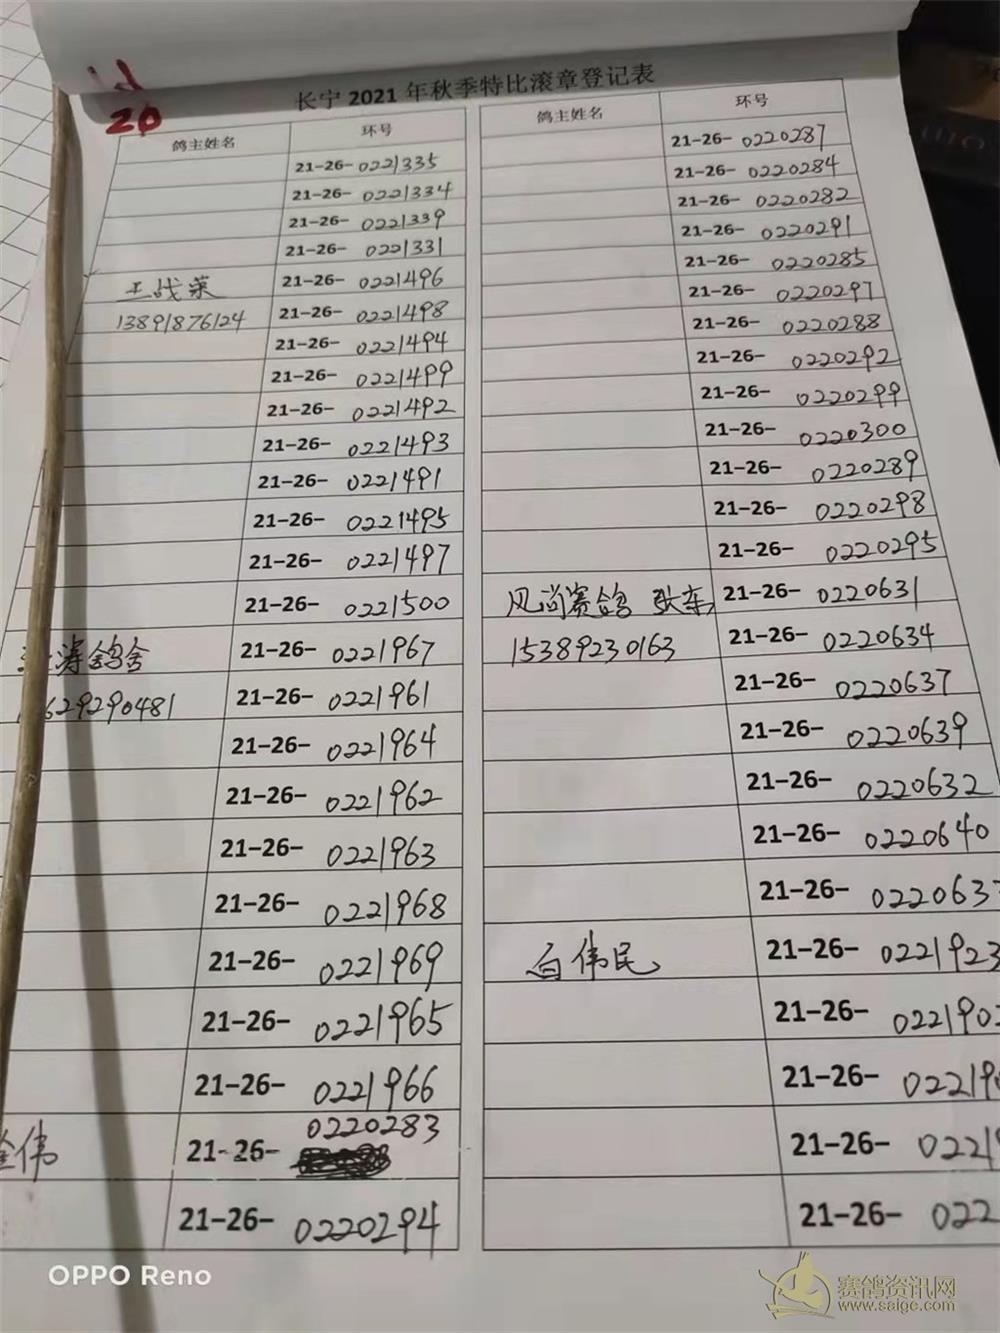 20
长宁 2021 年秋季特比滚章登记表
鸽主姓名 环号
21-26- 0221335
21-26- 0221334
21-26- 0221339
21-26- 0221331
王战荣 21-26- 0221496
13891876124 21-26- 0221498
21-26- 0221494
21-26- 0221499
21-26- 0221492
21-26- 0221493
21-26- 0221491
21-26- 0221495
21-26- 0221497
21-26- 0221500
涛鸽舍 21-26- 0221967
629290481 21-26- 0221961
21-26- 0221964
21-26- 0221962
21-26- 0221963
21-26- 0221968
21-26- 0221969
21-26- 0221965
21-26- 0221966
伟 21-26- 0220283
21-26- 0220294
鸽主姓名 环号
21-26- 0220287
21-26- 0220284
21-26- 0220282
21-26- 0220291
21-26- 0220285
21-26- 0220297
21-26- 0220288
21-26- 0220292
21-26- 0220299
21-26- 0220300
21-26- 0220289
21-26- 0220298
21-26- 0220295
风尚赛鸽 张 21-26- 0220631
15389230163 21-26- 0220634
21-26- 0220637
21-26- 0220639
21-26- 0220632
21-26- 0220640
21-26- 022063
白伟民 21-26- 0221923
21-26- 022190
21-26- 02219
21-26- 0221
21-26- 022
OPPO Reno
赛鸽资讯网
www.saige.com